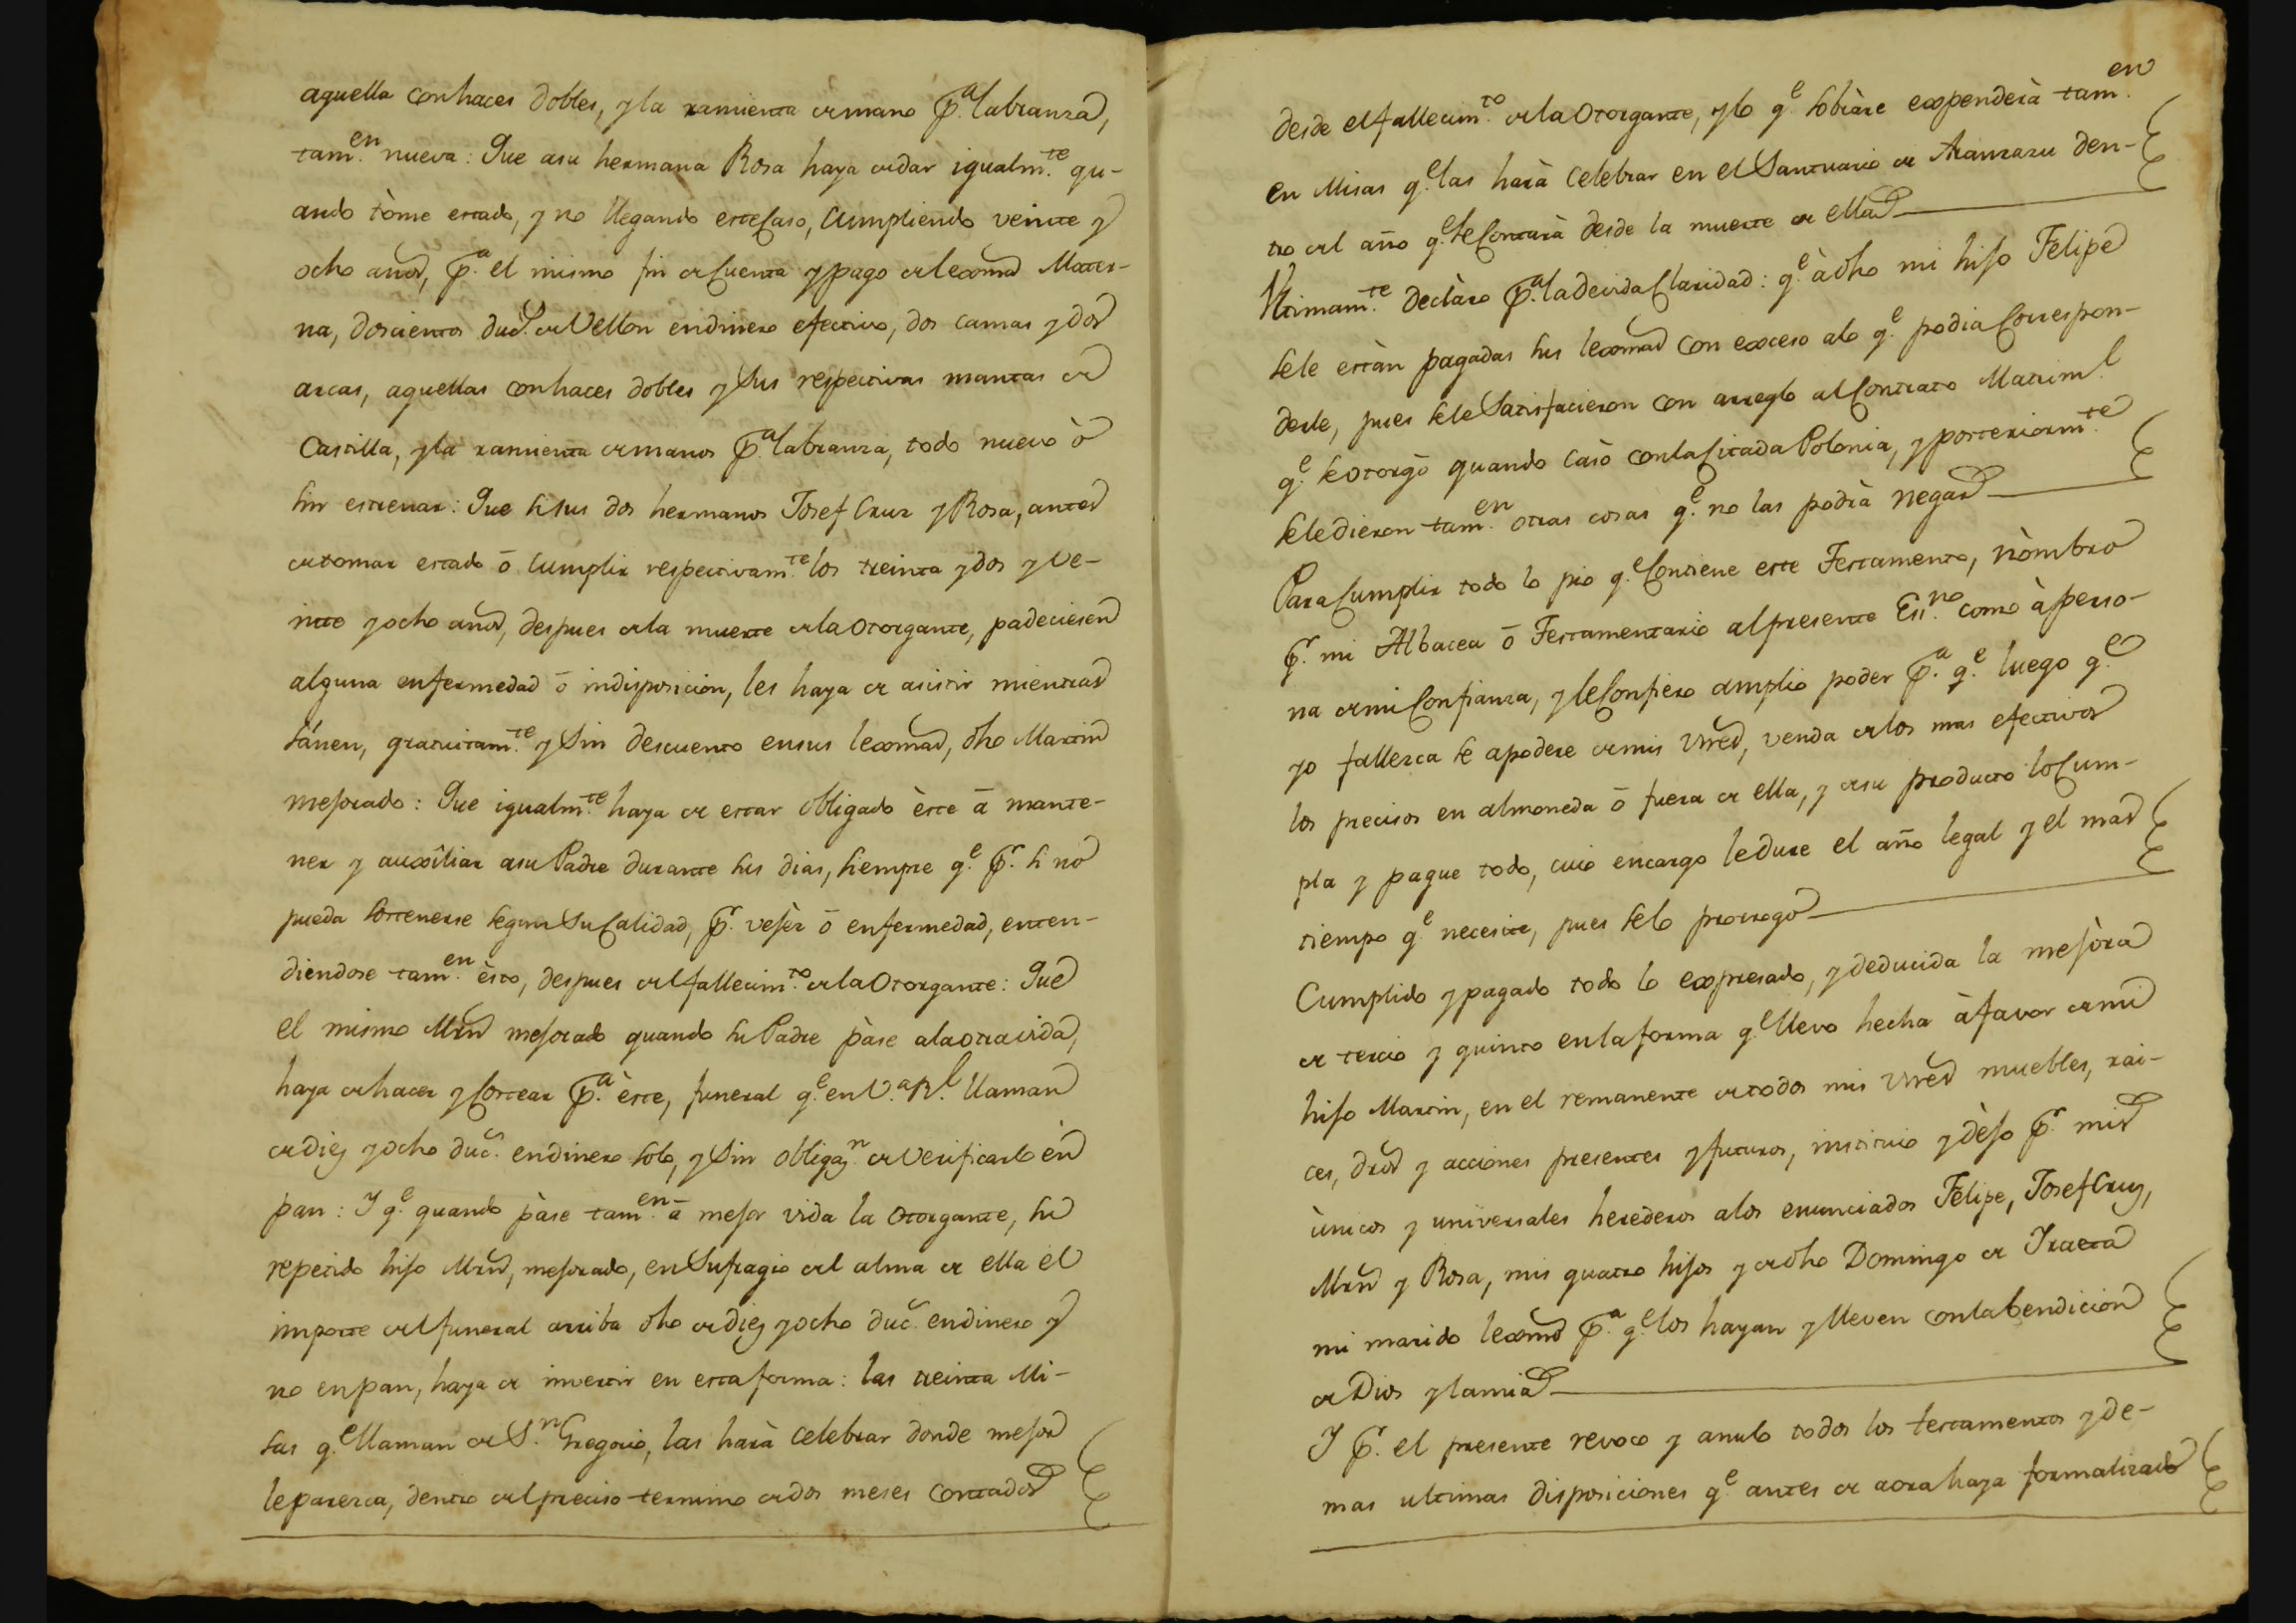 aquella con haces dobles, y la ramienta de mano p.ª labranza,
tam.en nueva: Que a su hermana Rosa haya de dar igualm.te qu-
ando tòme estado, y no llegando este Caso, Cumpliendo veinte y
ocho años, p.ª el mismo fin de Cuenta y pago de lexmas Mater-
na, doscientos duc.s de Vellon en dinero efectivo, dos camas y dos
arcas, aquellas con haces dobles y sus respectivas mantas de
Castilla, y la ramienta de manos p.ª labranza, todo nuevo ò
sin estrenar: Que si sus dos hermanos Josef Cruz y Rosa, antes
de tomar estado ō cumplir respectivam.te los treinta y dos y ve-
inte y ocho años, despues de la muerte de la Otorgante, padeciesen
alguna enfermedad ō indisposicion, les haya de asistir mientras
sánen, gratuitam.te y sin descuento en sus lexmas, dho Martin
mejorado: Que igualm.te haya de estar obligado èste ā mante-
ner y auxîliar a su Padre durante sus dias, siempre q.e p.r si no
pueda sostenerse segun su Calidad, p.r vejèz ō enfermedad, enten-
diendose tam.en èsto, despues del fallecim.to de la Otorgante: Que
el mismo Mrn mejorado quando su Padre pàse a la otra vida,
haya de hacer y Costear p.ª èste, funeral q.e en V.ª R.l llaman
de diez y ocho duc.s en dinero solo, y sin obligaz.n de Verificarlo èn
pan: Y q.e quando pàse tam.en ā mejor vida la Otorgante, su
repetido hijo Mrn, mejorado, en Sufragio del alma de ella el
importe del funeral arriba dho de diez y ocho duc.s en dinero y
no en pan, haya de invertir en esta forma: las treinta Mi-
sas q.e llaman de S.n Gregorio, las harà celebrar donde mejor
le parezca, dentro del preciso termino de dos meses Contados
desde el fallecim.to de la Otorgante, y lo q.e sobràre expenderà tam.en
en Misas q.e las harà celebrar en el Santuario de Aranzazu den-
tro del año q.e se Contarà desde la muerte de ella
Vltimam.te declàro p.ª la devida Claridad: q.e à dho mi hijo Felipe
se le estàn pagadas sus lexmas con exceso a lo q.e podia Correspon-
derle, pues se le Satisfacieron con arreglo al Contrato Matrim.l
q.e se otorgō quando Casò con la Citada Polonia, y posteriorm.te
se le dieron tam.en otras cosas q.e no las podrà negar
Para Cumplir todo lo pio q.e Contiene este Testamento, nòmbro
p.r mi Albacea ō Testamentario al presente Ess.no como à perso-
na de mi Confianza, y le Confiero amplio poder p.ª q.e luego q.e
yo fallezca se apodere de mis vnes, venda de los mas efectivos
los precisos en almoneda ō fuera de ella, y de su producto lo Cum-
pla y pague todo, cuio encargo le dure el año legal y el mas
tiempo q.e necesite, pues se lo prorrogo
Cumplido y pagado todo lo expresado, y deducida la mejòra
de tercio y quinto en la forma q.e llevo hecha à favor de mi
hijo Martin, en el remanente de todos mis vnes muebles, rai-
ces, dros y acciones presentes y futuros, instituio y dèjo p.r mis
ùnicos y universales herederos a los enunciados Felipe, Josef Cruz,
Mrn y Rosa, mis quatro hijos y de dho Domingo de Iraeta
mi marido lexmo p.ª q.e los hayan y lleven con la bendicion
de Dios y la mia
Y p.r el presente revoco y anulo todos los testamentos y de-
mas ultimas disposiciones q.e antes de aora haya formalizado